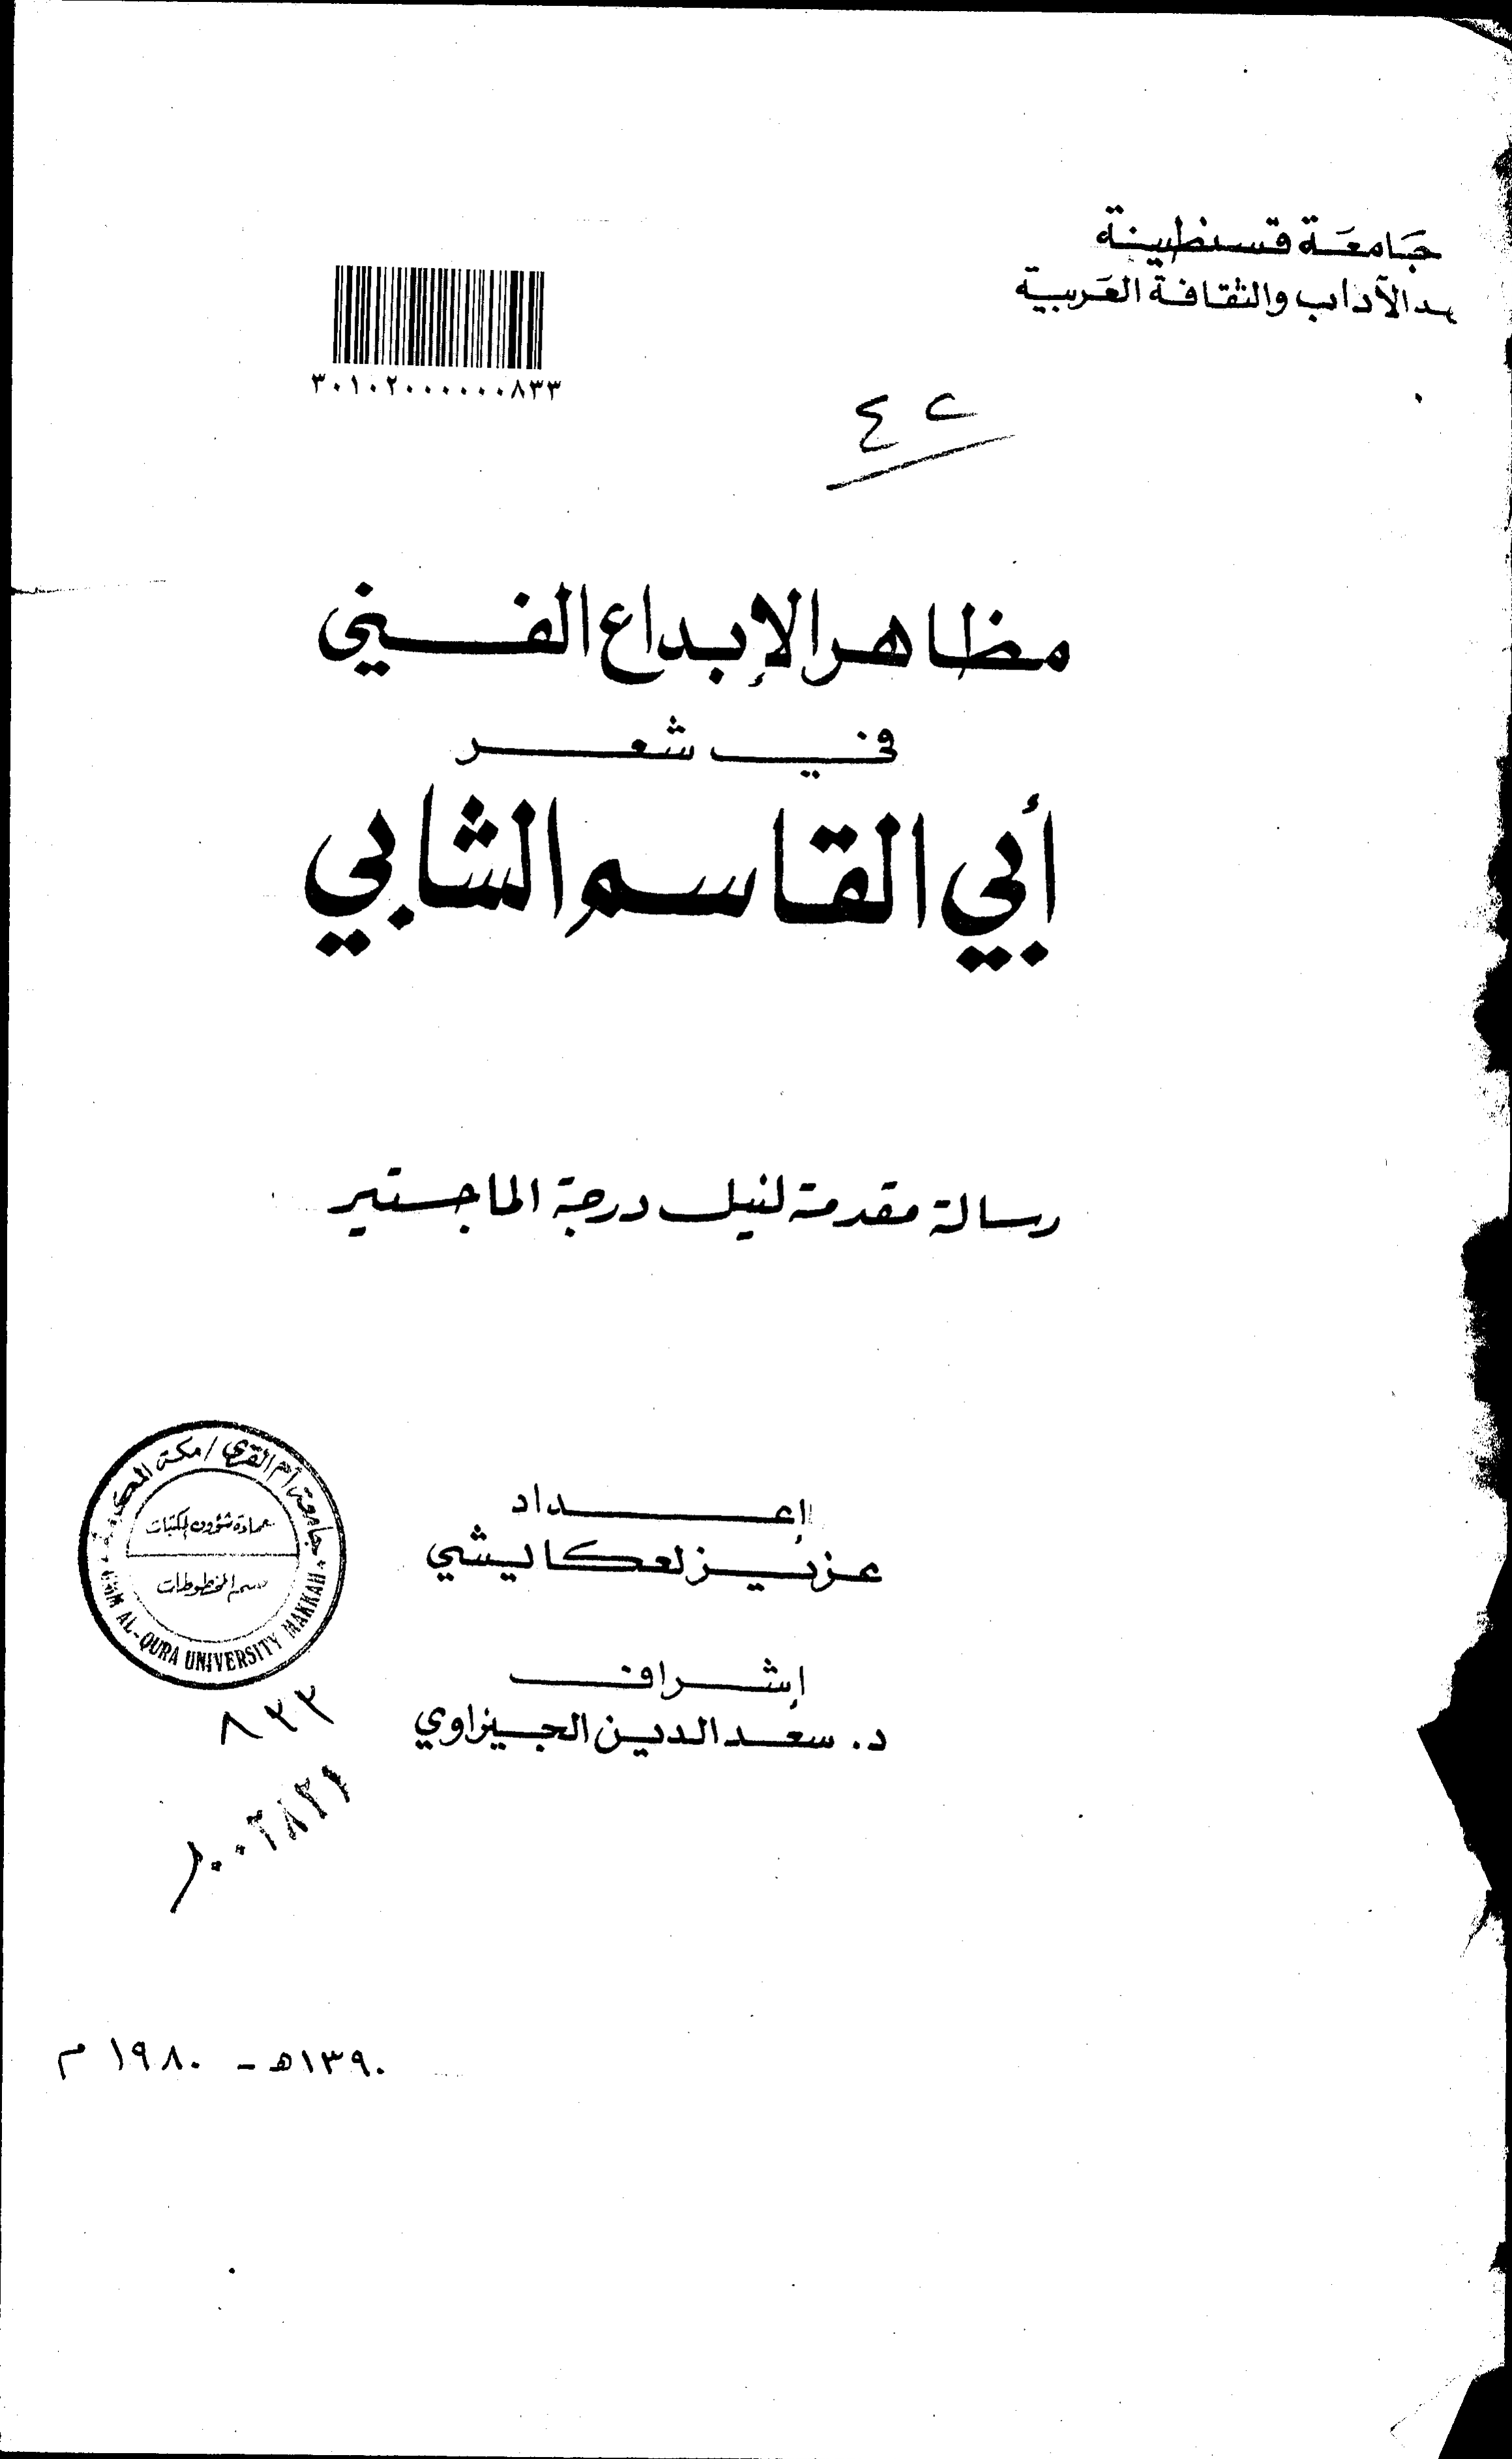 جامعة قسنطينة
هد الآداب والثقافة العربية
٣٠١٠٢٠٠٠٠٠٠٨٣٣
مظاهر الإبداع الفني
في شعر
أبي القاسم الشابي
رسالة مقدمة لنيل درجة الماجستير
إعداد
عزيز لعكاليشي
إشراف
د. سعد الدين الجيزاوي
جامعة أم القرى / مكة المكرمة
عمادة شؤون المكتبات
قسم المخطوطات
UMM AL-QURA UNIVERSITY MAKKAH
٨٣٣
١٣٩٠هـ - ١٩٨٠ م